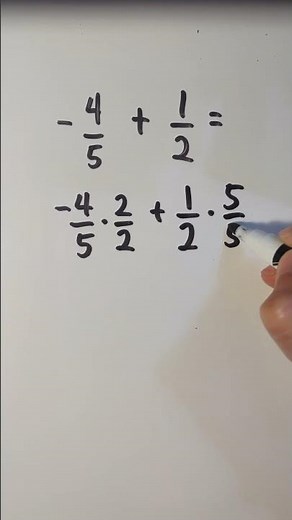 -4/5 + 1/2 =
-4/5 · 2/2 + 1/2 · 5/5